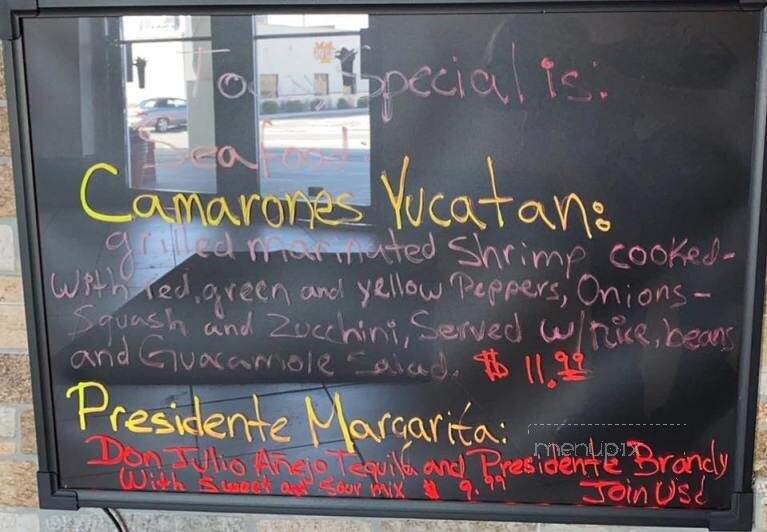 Today Special is:
Seafood
Camarones Yucatan:
grilled marinated Shrimp cooked-
With red, green and yellow Peppers, Onions-
Squash and Zucchini, Served w/rice, beans
and Guacamole Salad. $ 11.99
Presidente Margarita:
Don Julio Añejo Tequila and Presidente Brandy
With Sweet and Sour mix $ 9.99 Join Us!
menupix